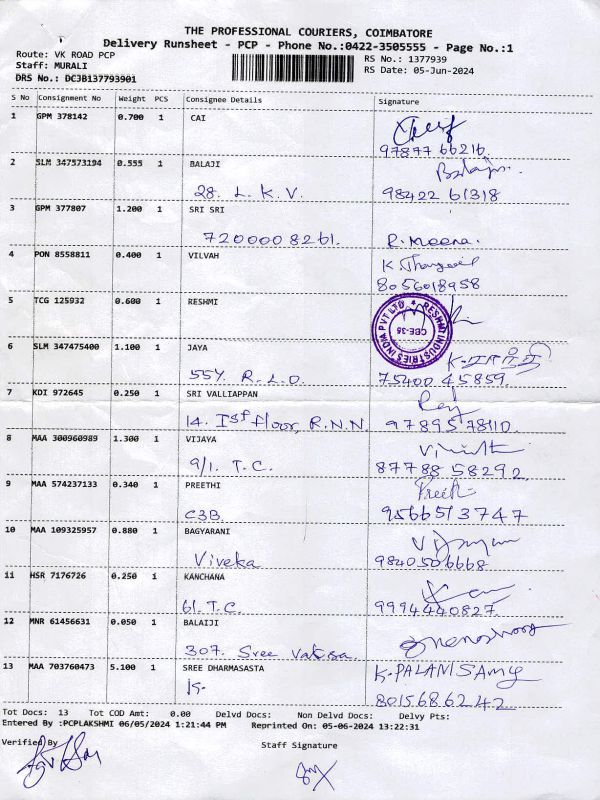 THE PROFESSIONAL COURIERS, COIMBATORE
Delivery Runsheet - PCP - Phone No.:0422-3505555 - Page No.:1
Route: VK ROAD PCP
RS No.: 1377939
Staff: MURALI
RS Date: 05-Jun-2024
DRS No.: DCJB137793901
S No Consignment No Weight PCS Consignee Details Signature
1 GPM 378142 0.700 1 CAI
97877 66216.
2 SLM 347573194 0.555 1 BALAJI Balaji
28. L. K. V. 98422 61318
3 GPM 377807 1.200 1 SRI SRI
7200008261. R. Meena.
4 PON 8558811 0.400 1 VILVAH K
8056018958
5 TCG 125932 0.600 1 RESHMI
RESHMI INDUSTRIES INDIA PVT LTD ★ CBE-38
6 SLM 347475400 1.100 1 JAYA
55Y. R. L. D. 75400 45859.
7 KDI 972645 0.250 1 SRI VALLIAPPAN
14. Ist floor, R.N.N. 97895 78110.
8 MAA 300960989 1.300 1 VIJAYA
9/1. T.C. 87788 58292
9 MAA 574237133 0.340 1 PREETHI Preethi
C3B. 9566513747
10 MAA 109325957 0.880 1 BAGYARANI
Viveka 9840506668
11 HSR 7176726 0.250 1 KANCHANA
61. T.C. 9994440827.
12 MNR 61456631 0.050 1 BALAIJI
307. Sree
13 MAA 703760473 5.100 1 SREE DHARMASASTA K. PALANISAMY
80156 86242
Tot Docs: 13 Tot COD Amt: 0.00 Delvd Docs: Non Delvd Docs: Delvy Pts:
Entered By :PCPLAKSHMI 06/05/2024 1:21:44 PM Reprinted On: 05-06-2024 13:22:31
Verified By Staff Signature